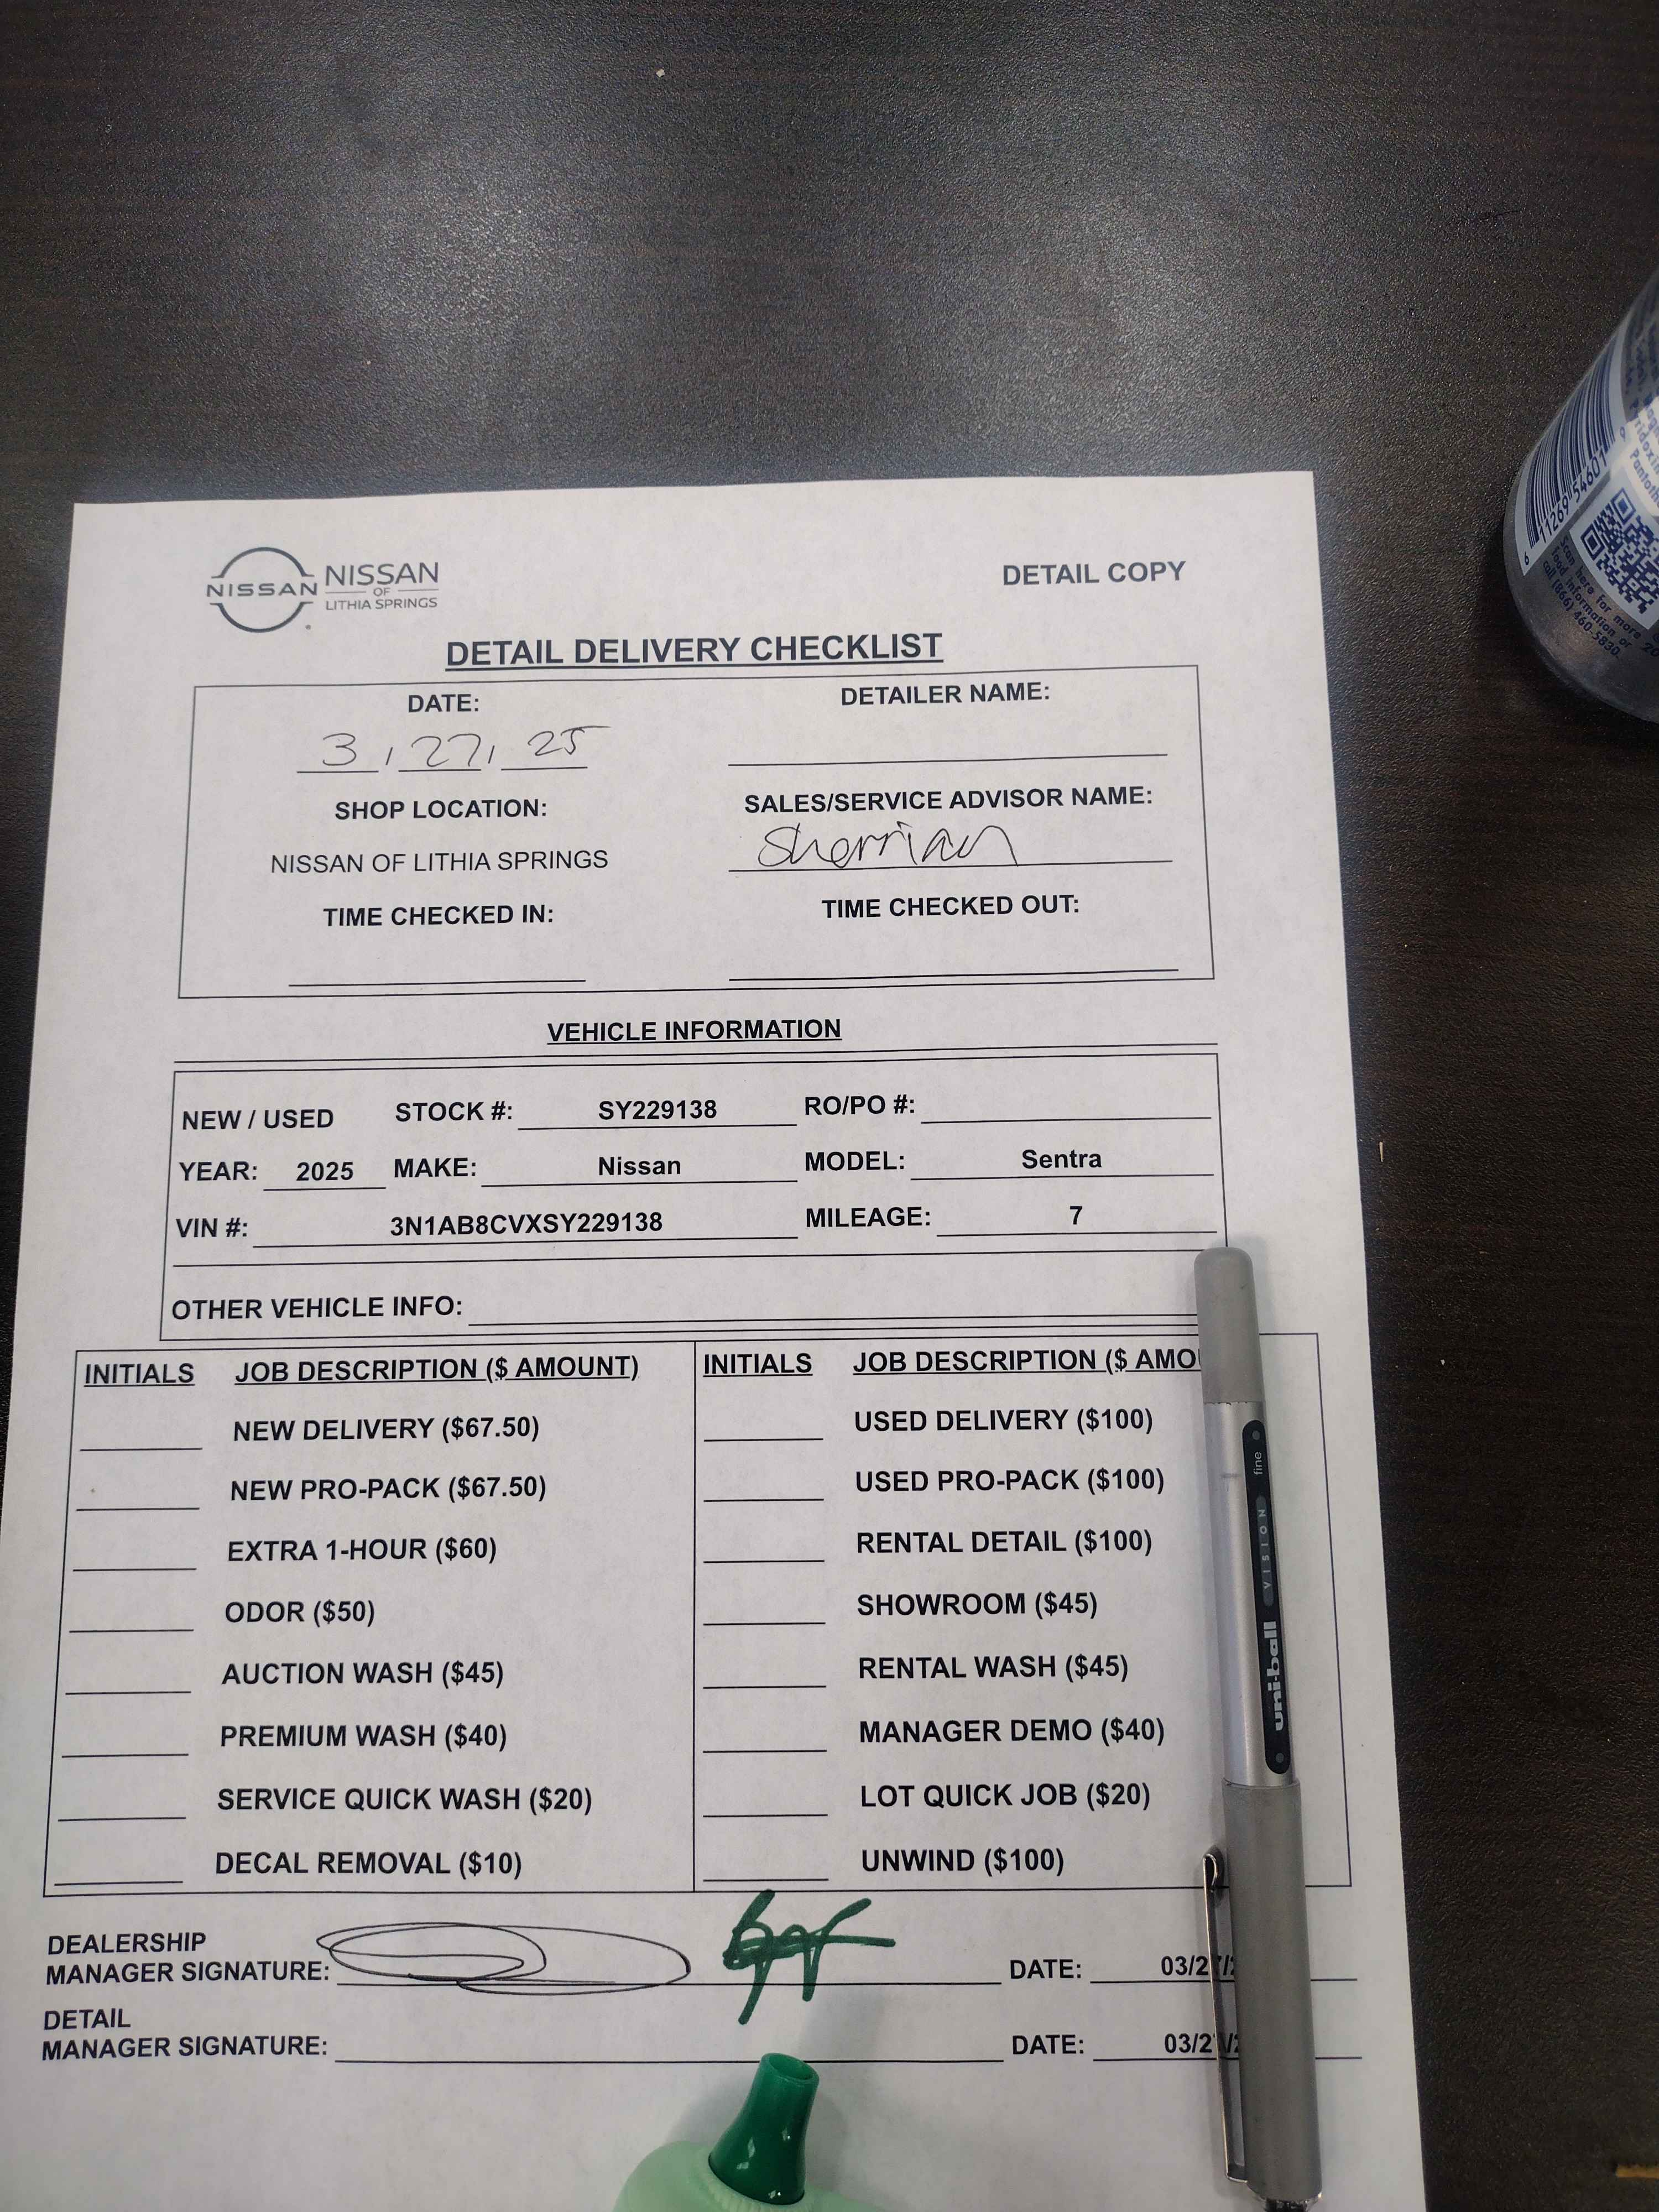 NISSAN
NISSAN
OF
LITHIA SPRINGS
DETAIL COPY
DETAIL DELIVERY CHECKLIST
DATE:
3, 27, 25
DETAILER NAME:
SHOP LOCATION:
NISSAN OF LITHIA SPRINGS
SALES/SERVICE ADVISOR NAME:
Sherrian
TIME CHECKED IN:
TIME CHECKED OUT:
VEHICLE INFORMATION
NEW / USED STOCK #: SY229138 RO/PO #:
YEAR: 2025 MAKE: Nissan MODEL: Sentra
VIN #: 3N1AB8CVXSY229138 MILEAGE: 7
OTHER VEHICLE INFO:
INITIALS JOB DESCRIPTION ($ AMOUNT)
NEW DELIVERY ($67.50)
NEW PRO-PACK ($67.50)
EXTRA 1-HOUR ($60)
ODOR ($50)
AUCTION WASH ($45)
PREMIUM WASH ($40)
SERVICE QUICK WASH ($20)
DECAL REMOVAL ($10)
INITIALS JOB DESCRIPTION ($ AMO
USED DELIVERY ($100)
USED PRO-PACK ($100)
RENTAL DETAIL ($100)
SHOWROOM ($45)
RENTAL WASH ($45)
MANAGER DEMO ($40)
LOT QUICK JOB ($20)
UNWIND ($100)
DEALERSHIP
MANAGER SIGNATURE: DATE: 03/27/
DETAIL
MANAGER SIGNATURE: DATE: 03/2
fine
VISION
uni-ball
6 11269 54601 9
Scan here for more
food information or
call (866) 460-5830.